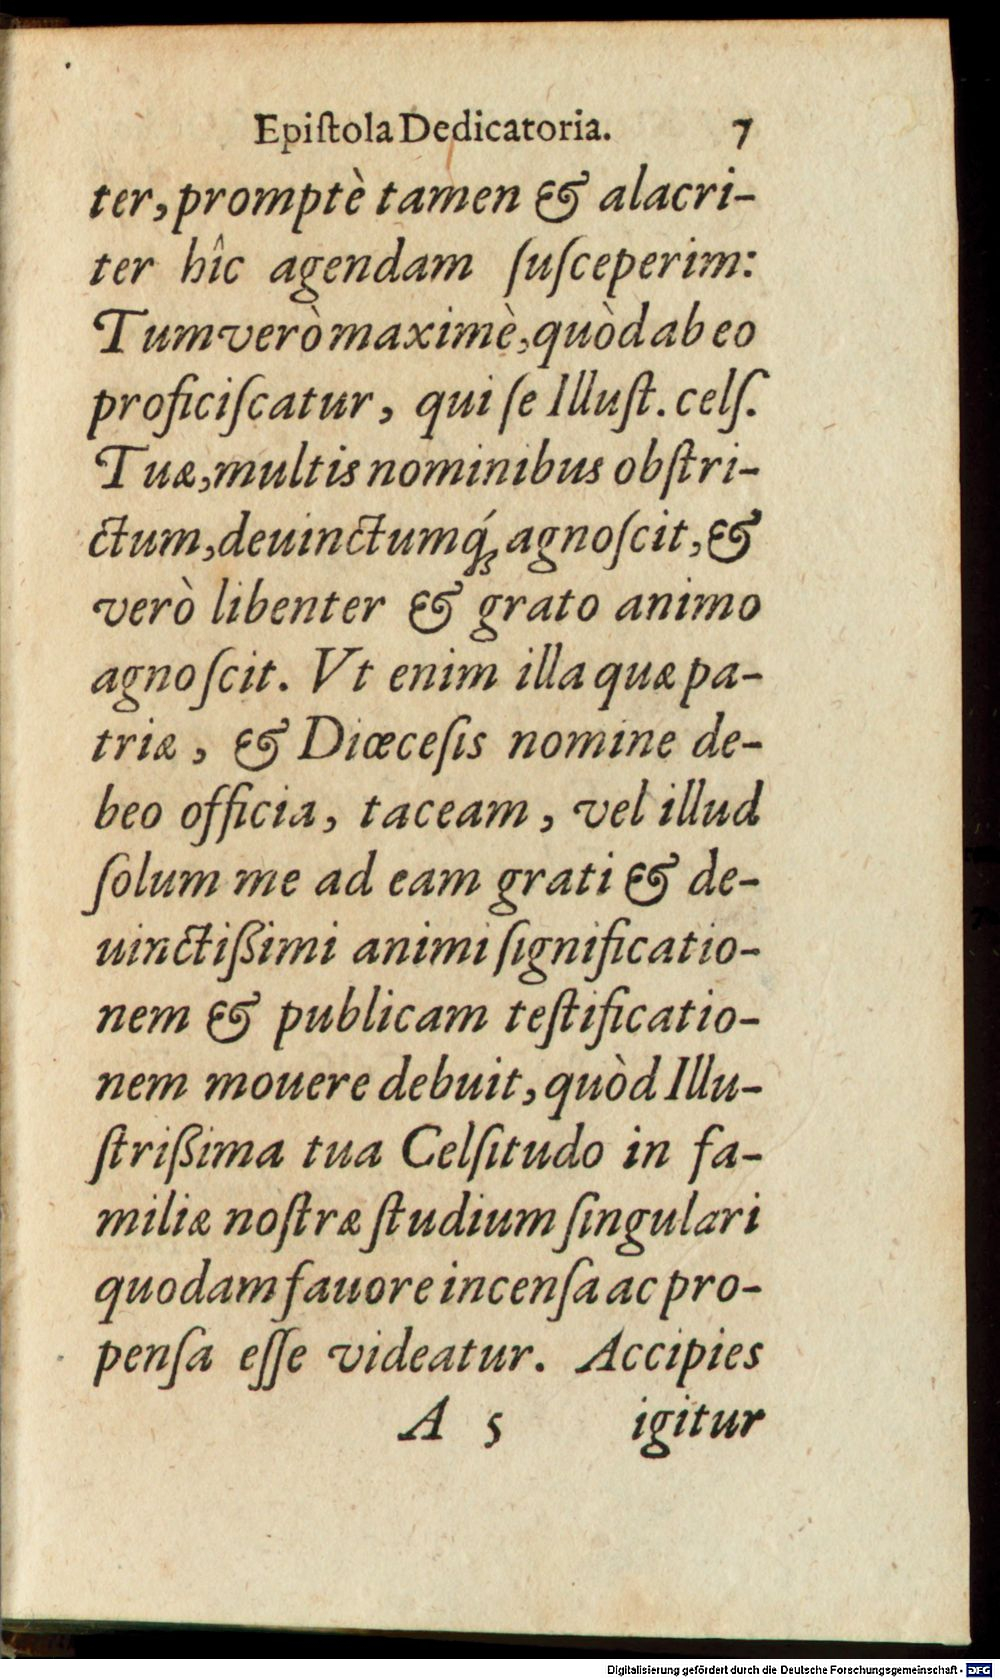 Epiſtola Dedicatoria. 7
ter, promptè tamen & alacri-
ter hîc agendam ſuſceperim:
Tum verò maximè, quòd ab eo
proficiſcatur, qui ſe Illuſt. celſ.
Tuæ, multis nominibus obſtri-
ctum, deuinctumq́ꝫ agnoſcit, &
verò libenter & grato animo
agnoſcit. Vt enim illa quæ pa-
triæ, & Diœceſis nomine de-
beo officia, taceam, vel illud
ſolum me ad eam grati & de-
uinctißimi animi ſignificatio-
nem & publicam teſtificatio-
nem mouere debuit, quòd Illu-
ſtrißima tua Celſitudo in fa-
miliæ noſtræ ſtudium ſingulari
quodam fauore incenſa ac pro-
penſa eſſe videatur. Accipies
A 5 igitur
Digitalisierung gefördert durch die Deutsche Forschungsgemeinschaft - DFG